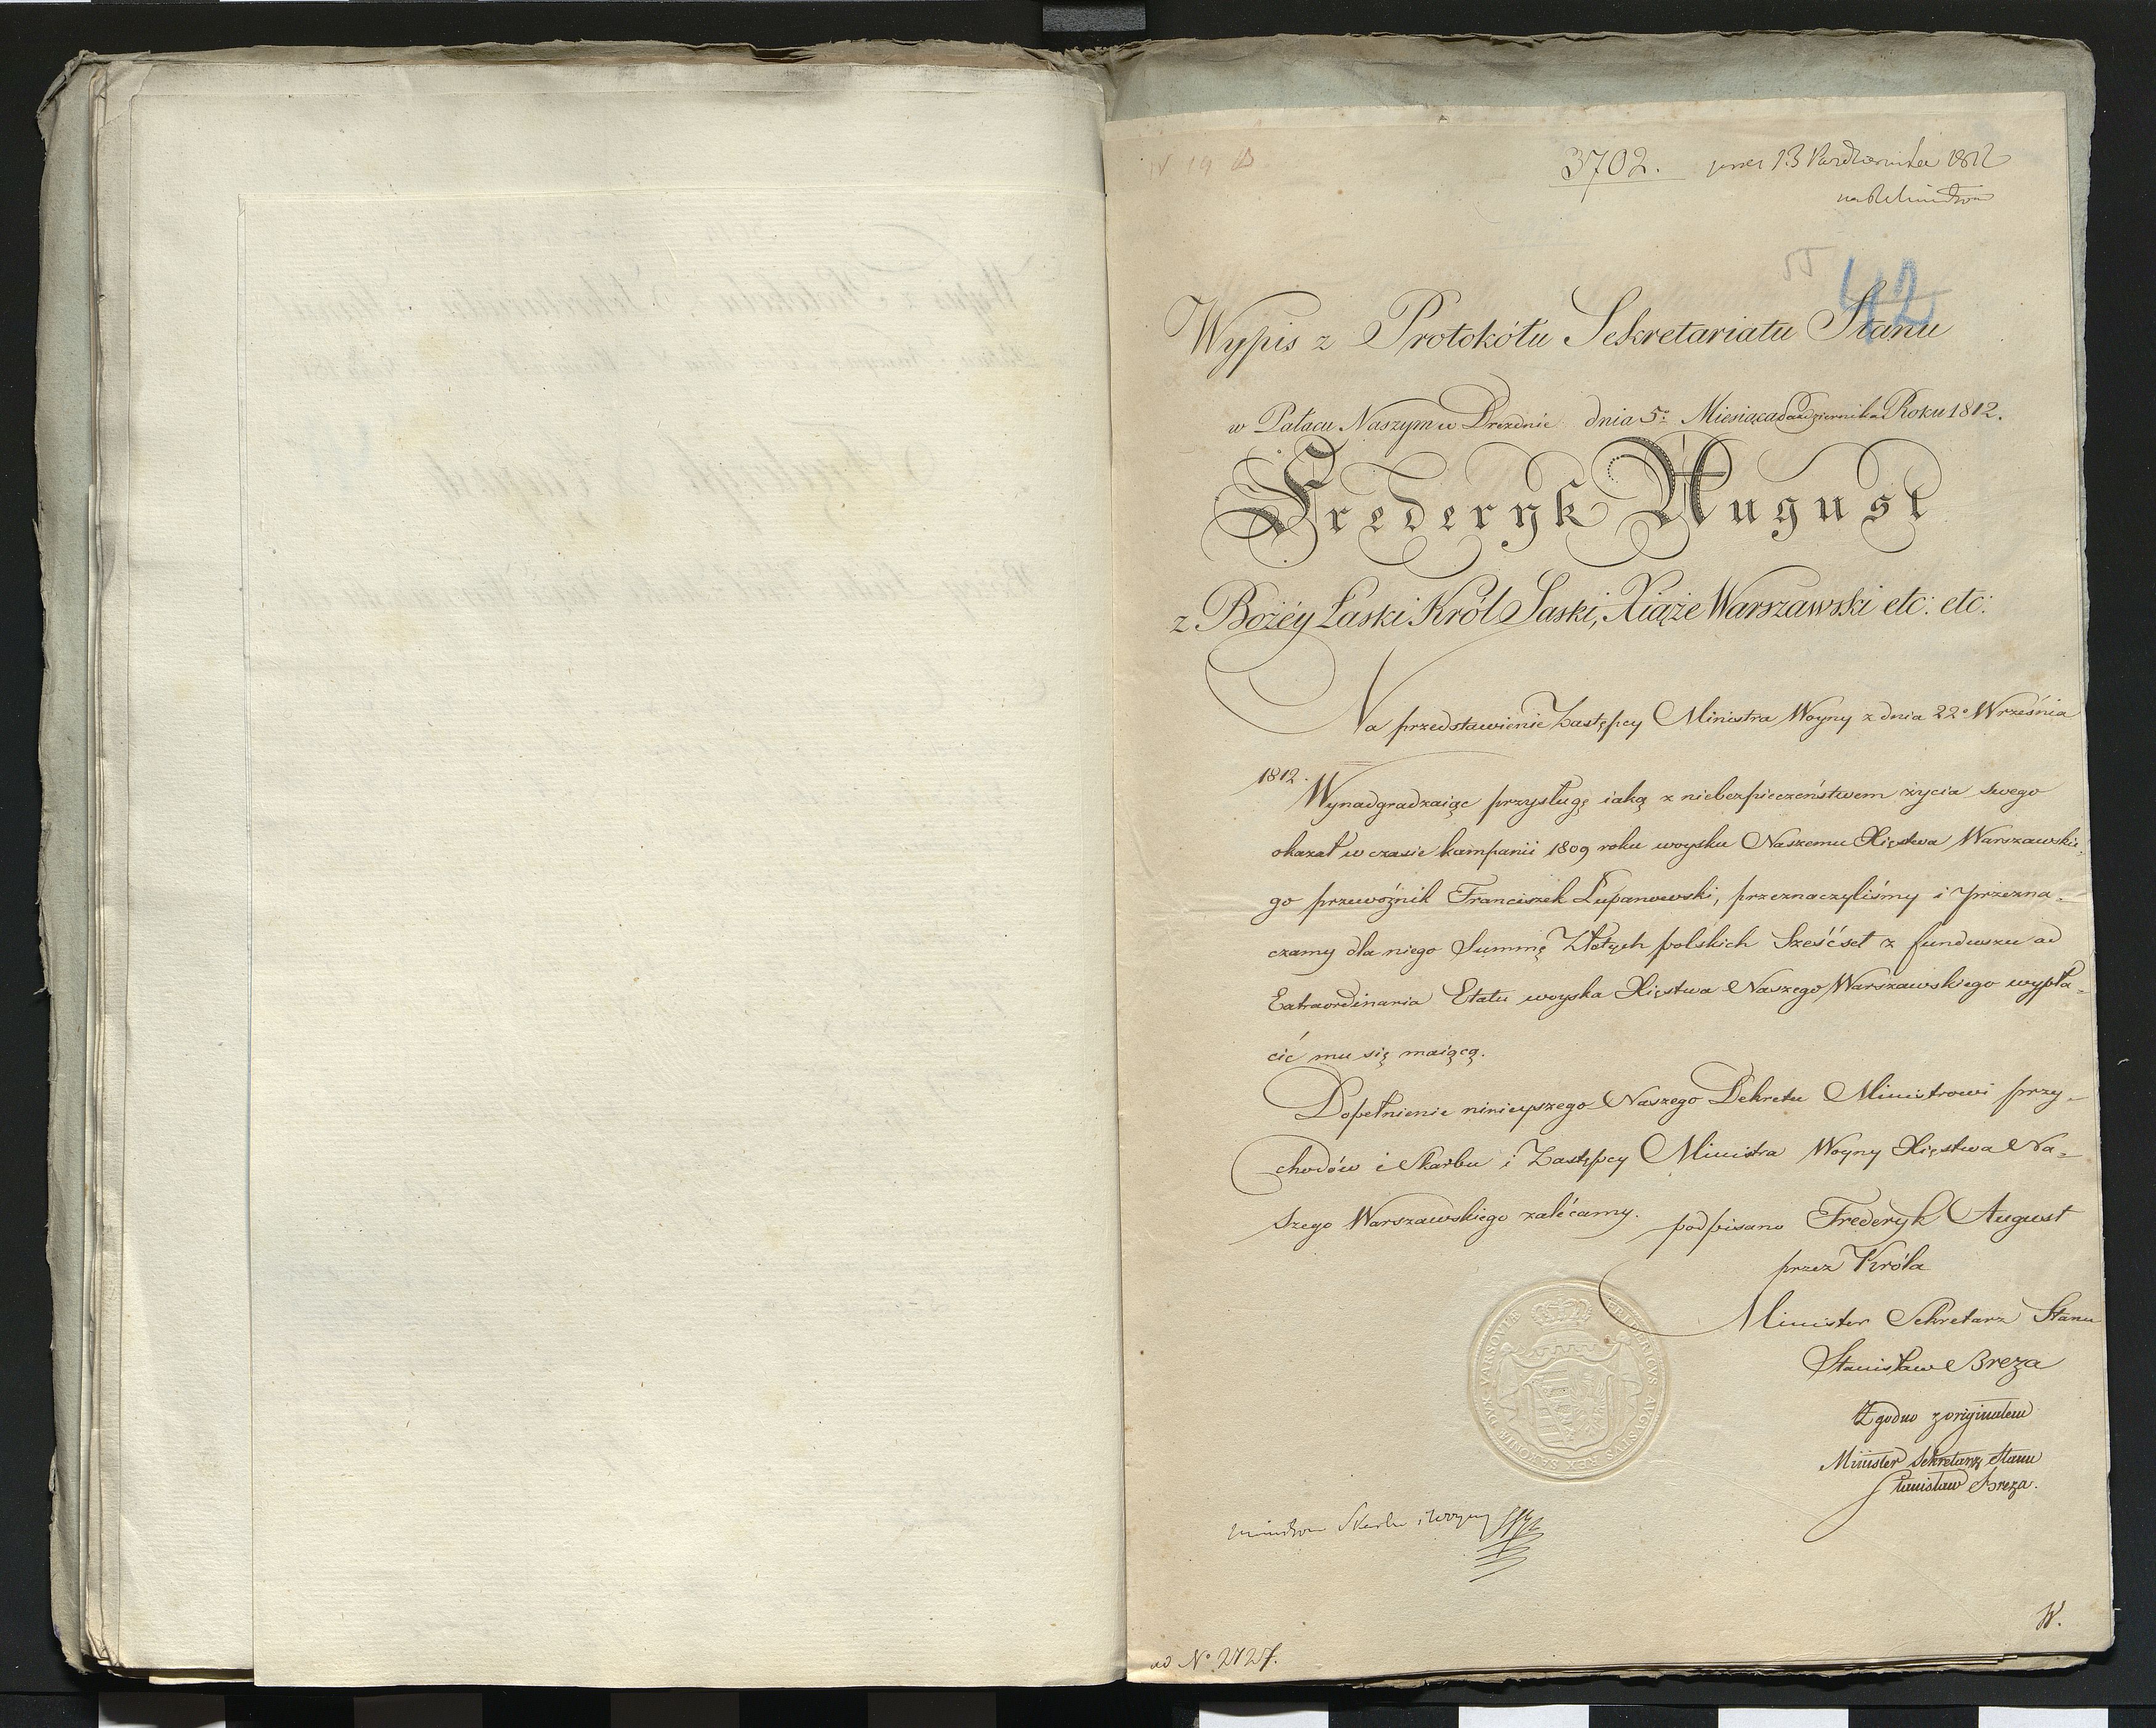 3702. 13 Października 1812
55 42
Wypis z Protokółu Sekretariatu Stanu
w Pałacu Naszym w Dreznie dnia 5º Miesiąca Października Roku 1812.
Frederyk August
z Bożéy Łaski Król Saski, Xiąże Warszawski etc: etc:
Na przedstawienie Zastępcy Ministra Woyny z dnia 22º Września
1812.
Wynadgradzaiąc przysługę iaką z niebezpieczeństwem życia swego
okazał w czasie kampanii 1809 roku woysku Naszemu Xięstwa Warszawskie=
go przewóźnik Franciszek Łupanowski, przeznaczyliśmy i przezna=
czamy dla niego Summę Złotych polskich Sześćset z funduszu ad
Extraordinaria Etatu woyska Xięstwa Naszego Warszawskiego wypła=
cić mu się maiącą.
Dopełnienie ninieyszego Naszego Dekretu Ministrowi przy=
chodów i Skarbu i Zastępcy Ministra Woyny Xięstwa Na=
szego Warszawskiego zalécamy. podpisano Frederyk August
przez Króla
Minister Sekretarz Stanu
Stanisław Breza
FRIDERICVS AVGVSTVS REX SAXONIÆ DVX VARSOVIÆ
Zgodno z originałem
Minister Sekretarz Stanu
Stanisław Breza.
Skarbu i Woyny
W.
ad Nº 2727.